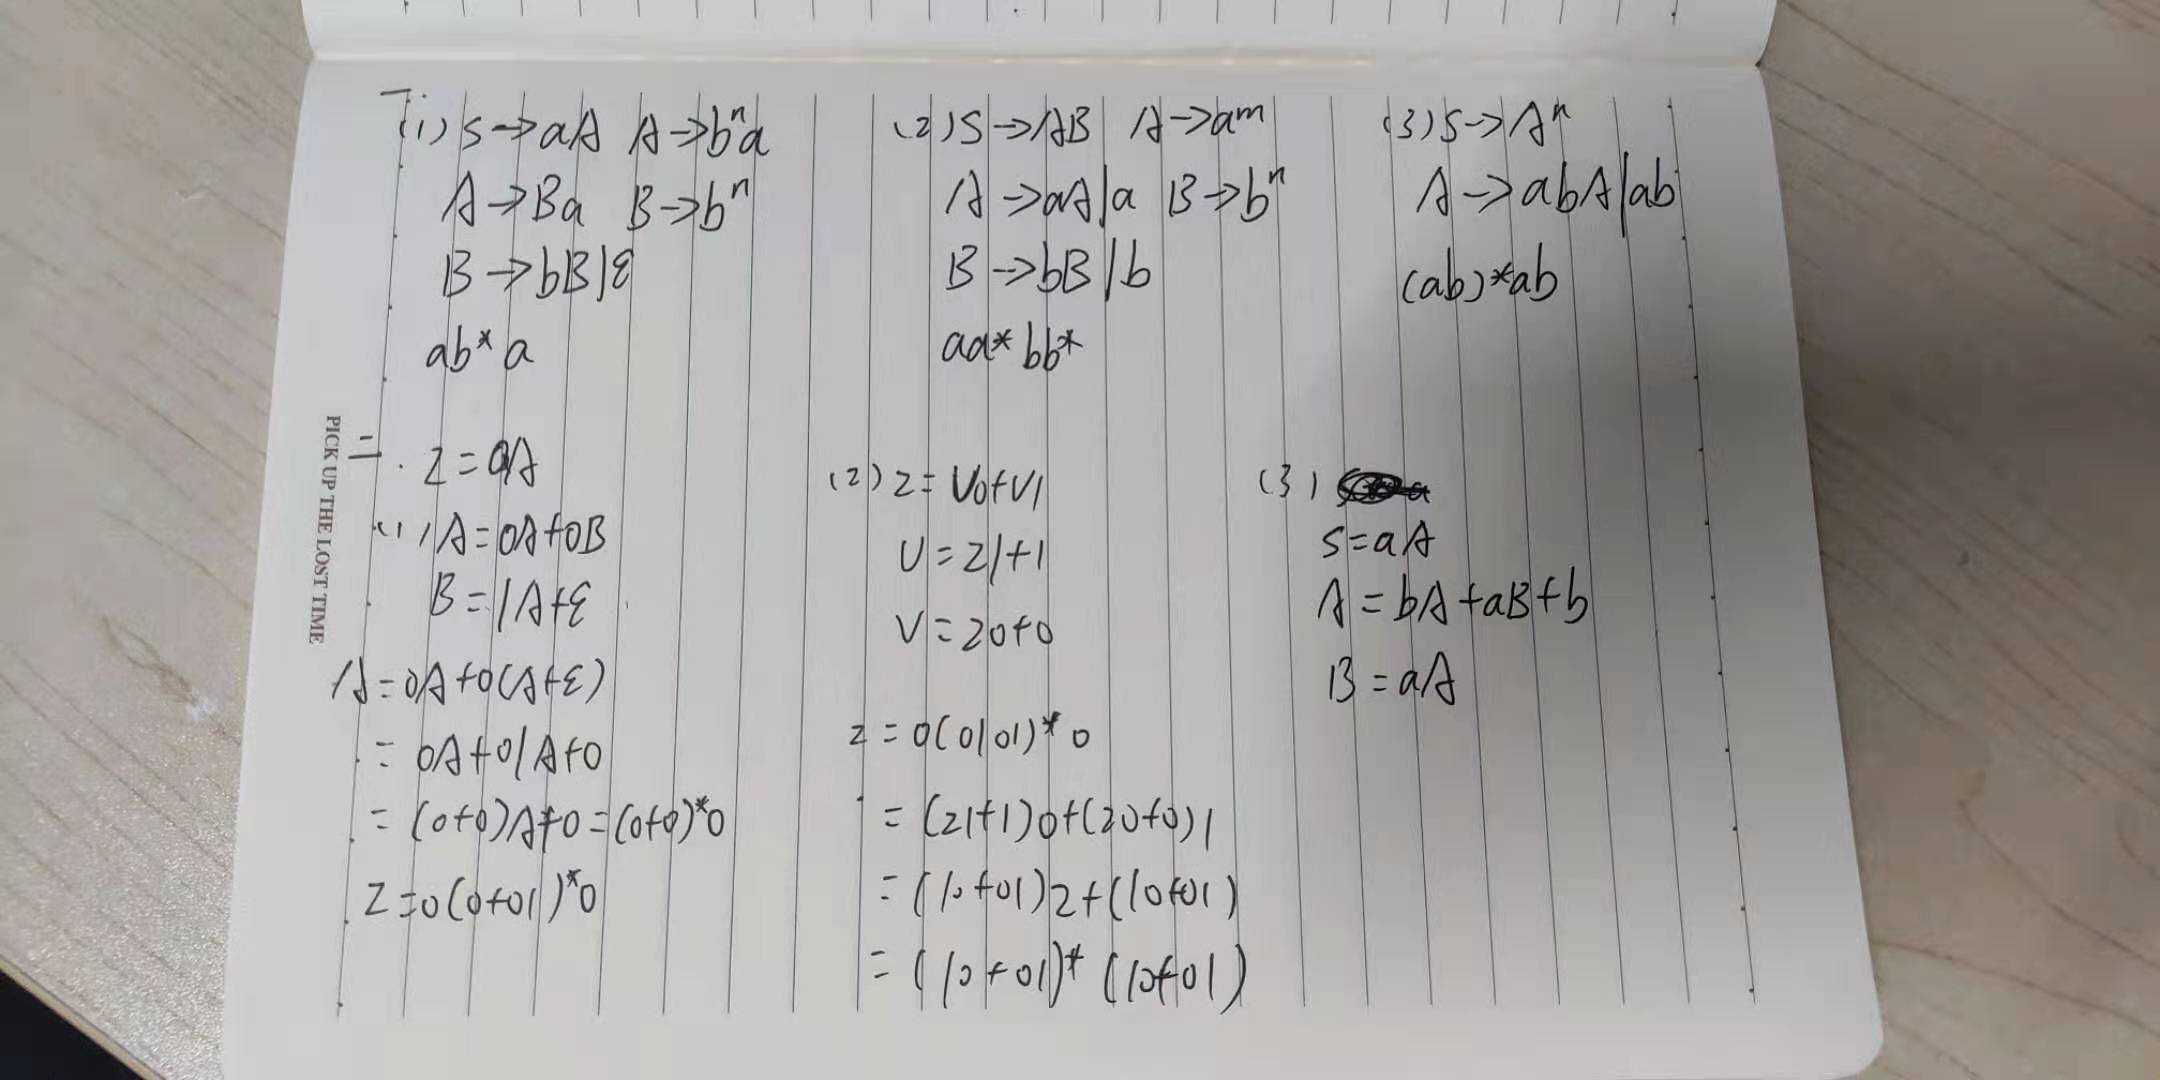 一.
(1) S→aA A→bⁿa
A→Ba B→bⁿ
B→bB|ε
ab*a
(2) S→AB A→aᵐ
A→aA|a B→bⁿ
B→bB|b
aa*bb*
(3) S→Aⁿ
A→abA|ab
(ab)*ab
二. Z=0A
(1) A=0A+0B
B=1A+ε
A=0A+0(A+ε)
=0A+01A+0
=(0+0)A+0=(0+0)*0
Z=0(0+01)*0
(2) Z=U0+V1
U=Z1+1
V=Z0+0
Z=0(0|01)*0
=(Z1+1)0+(Z0+0)1
=(10+01)Z+(10+01)
=(10+01)*(10+01)
(3)
S=aA
A=bA+aB+b
B=aA
PICK UP THE LOST TIME